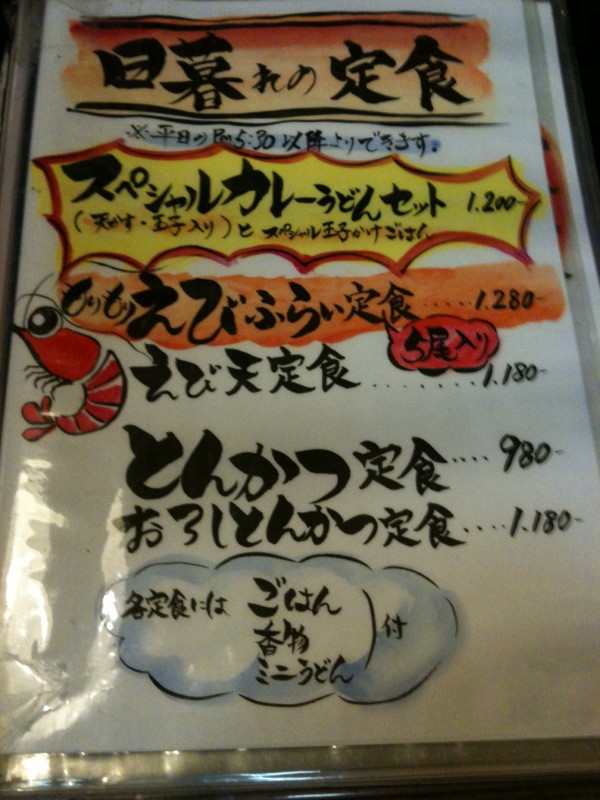 日暮れの定食
※平日のPM5:30以降よりできます。
スペシャルカレーうどんセット 1.200-
(天かす・玉子入り)とスペシャル玉子かけごはん
もりもりえびふらい定食.....1.280-
5尾入り
えび天定食........1.180-
とんかつ定食....980-
おろしとんかつ定食....1.180-
各定食には
ごはん
香物
ミニうどん
付